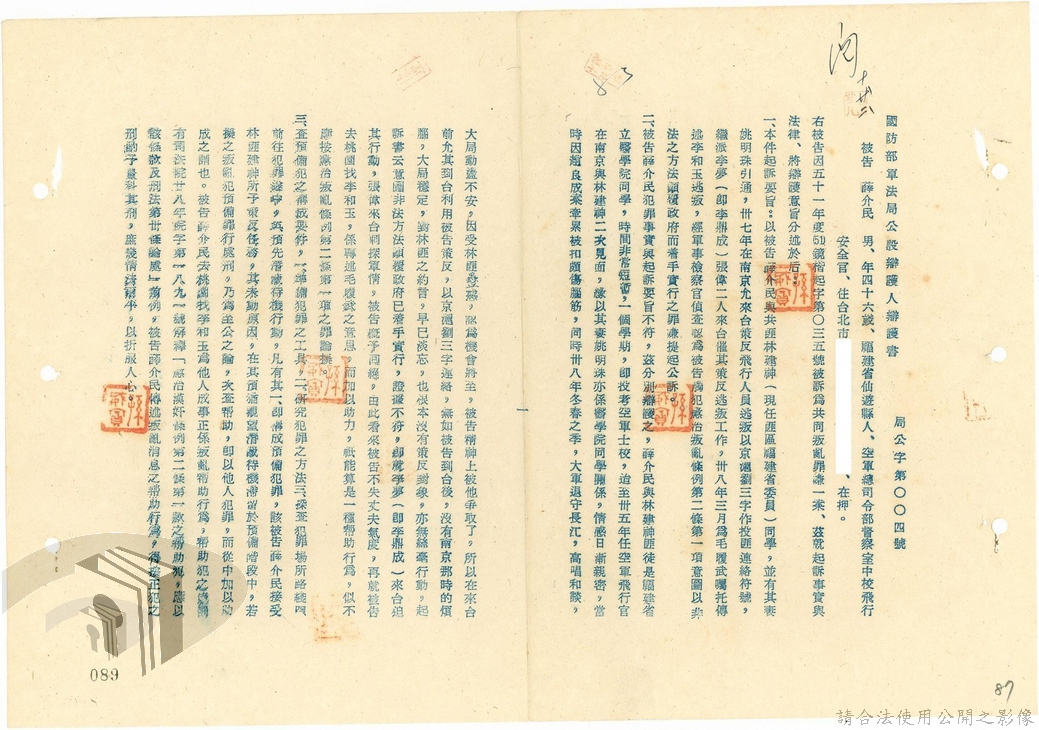 國防部軍法局公設辯護人辯護書
局公字第〇〇四號
被告 薛介民 男、年四十六歲、福建省仙遊縣人、空軍總司令部督察室中校飛行
安全官、住台北市 、在押。
右被告因五十一年度 起字第〇三五號被訴為共同叛亂罪嫌一案、茲就起訴事實與
法律、將辯護意旨分述於后。
一、本件起訴要旨：以被告薛介民與共匪林建神（現任匪區福建省委員）同學，並有其妻
姚明珠引通，卅七年在南京允來台策反飛行人員逃叛以京滬劉三字作投匪連絡符號，
繼派李夢（即李鼎成）張偉二人來台催其策反逃叛工作，卅八年三月為毛履武囑托傳
送李和玉逃叛，經軍事檢察官偵查認為被告 犯懲治叛亂條例第二條第一項意圖以非
法之方法顛覆政府而着手實行之罪嫌提起公訴。
二、被告薛介民犯罪事實與起訴要旨不符，茲分別辯護之，薛介民與林建神匪徒是福建省
立醫學院同學，時間非常短暫，一個學期，即投考空軍士校，迨至卅五年任空軍飛行官
在南京與林建神二次見面，緣以其妻姚明珠亦係醫學院同學關係，情感日漸親密，當
時因趙良成案牽累被扣頗傷腦筋，同時卅八年冬春之季，大軍退守長江，高唱和談，
大局動盪不安，因受林匪 惑，認為機會將至，被告精神上被他爭取了，所以在來台
前允其到台利用被告策反，以京滬劉三字連絡，無如被告到台後，沒有南京那時的煩
腦，大局穩定，對林匪之約言，早已淡忘，也根本沒有策反對象，亦無絲毫行動，起
訴書云意圖非法方法顛覆政府已着手實行，證據不符，即就李夢（即李鼎成）來台迫
其行動，張偉來台刺探軍情，被告概予回絕，由此看來被告不失丈夫氣度，再就被告
去桃園找李和玉，係轉述毛履武之意思，而加以助力，祇能算是一種幫助行為，似不
應按懲治叛亂條例第二條第一項之罪論擬。
三、查預備犯之構成要件，一、準備犯罪之工具，二、研究犯罪之方法三、探查犯罪場所路線四、
前往犯罪途中，或預先潛藏待機行動，凡有其一、即構成預備犯罪，該被告薛介民接受
林匪建神所予策反任務，其未動原因，在其預備觀望潛藏待機滯留於預備階段中，若
擬之叛亂犯預備罪行處刑，乃為至公之論，次查幫助，即以他人犯罪，而從中加以助
成之謂也。被告薛介民去桃園找李和玉為他人成事正係叛亂幫助行為，幫助犯之處罰
有司法院廿八年院字第一八九一號解釋「懲治漢奸條例第二條第一款之幫助犯，應以
該條款及刑法第卅條論處」前例，被告薛介民傳述叛亂消息之幫助行為，得按正犯之
刑酌予量科其刑，庶幾情法兩平，以折服人心。
一
089
87
請合法使用公開之影像